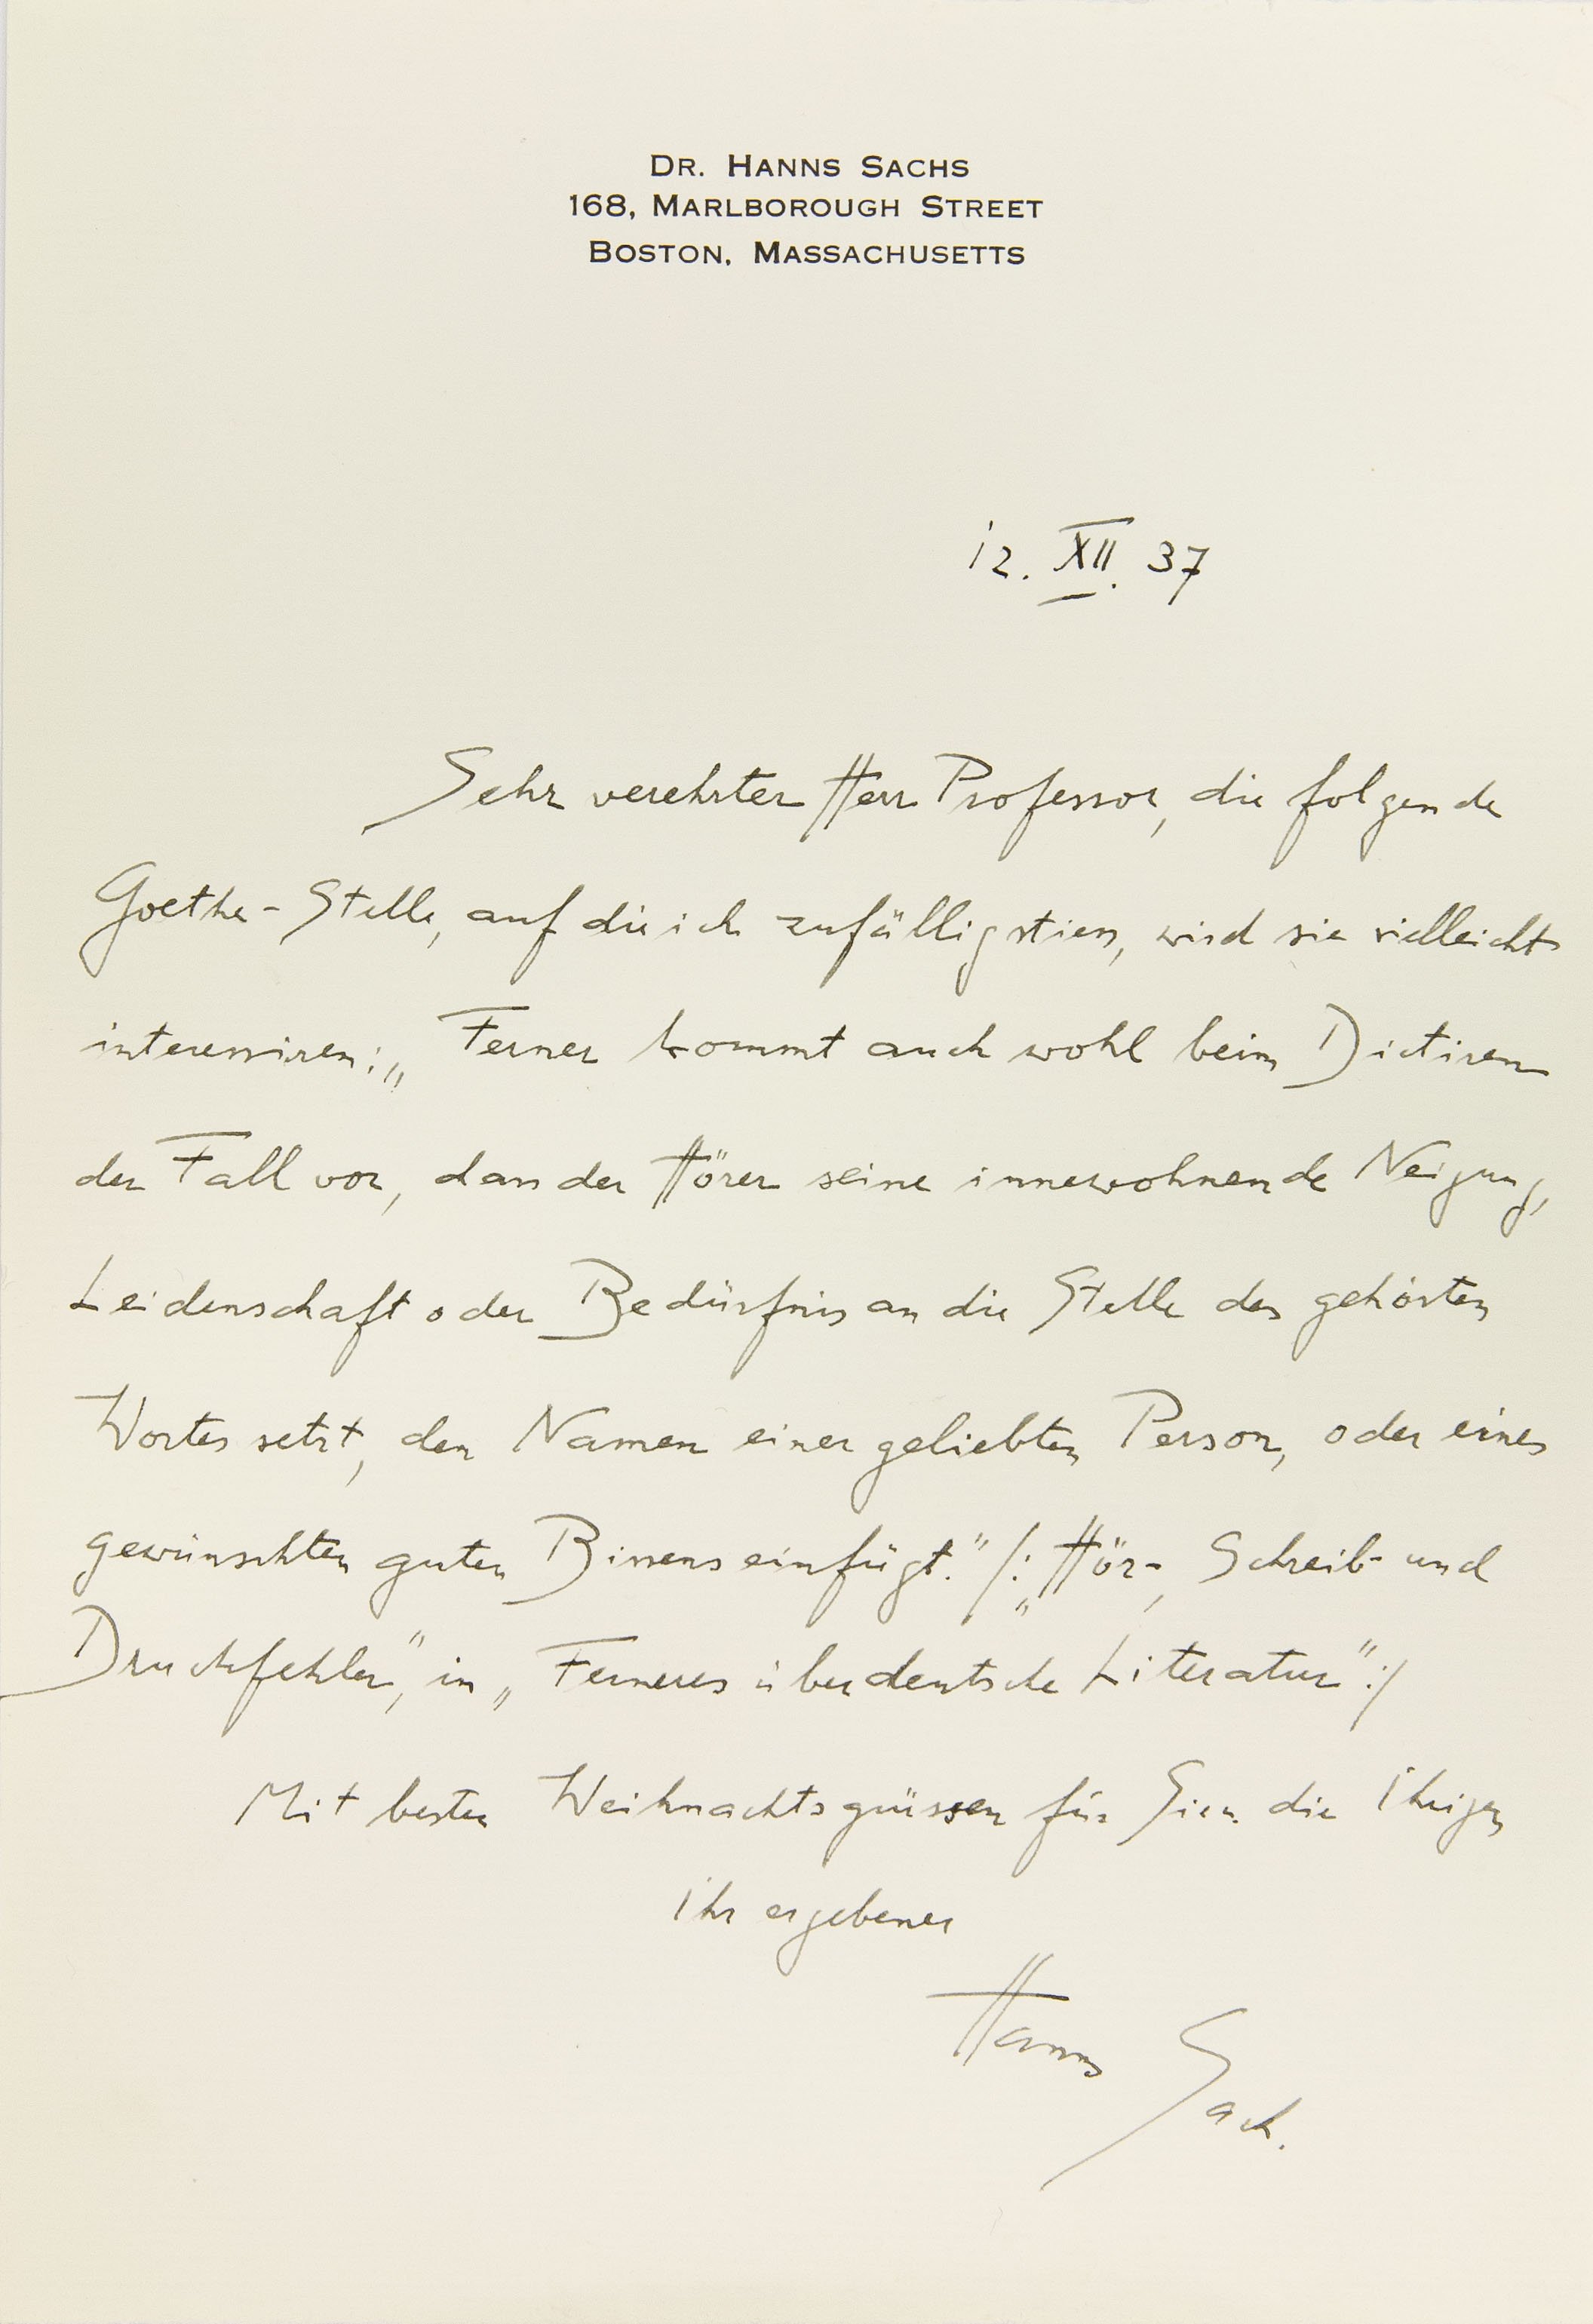 DR. HANNS SACHS
168, MARLBOROUGH STREET
BOSTON, MASSACHUSETTS
12. XII. 37
Sehr verehrter Herr Professor, die folgende
Goethe-Stelle, auf die ich zufällig stiess, wird sie vielleicht
interessiren: „Ferner kommt auch wohl beim Dictiren
der Fall vor, dass der Hörer seine innewohnende Neigung,
Leidenschaft oder Bedürfnis an die Stelle des gehörten
Wortes setzt, den Namen einer geliebten Person, oder eines
gewünschten guten Bissens einfügt." /: „Hör-, Schreib- und
Druckfehler", in „Ferneres über deutsche Literatur" :/
Mit besten Weihnachtsgrüssen für Sie u. die Ihrigen
Ihr ergebener
Hanns Sachs